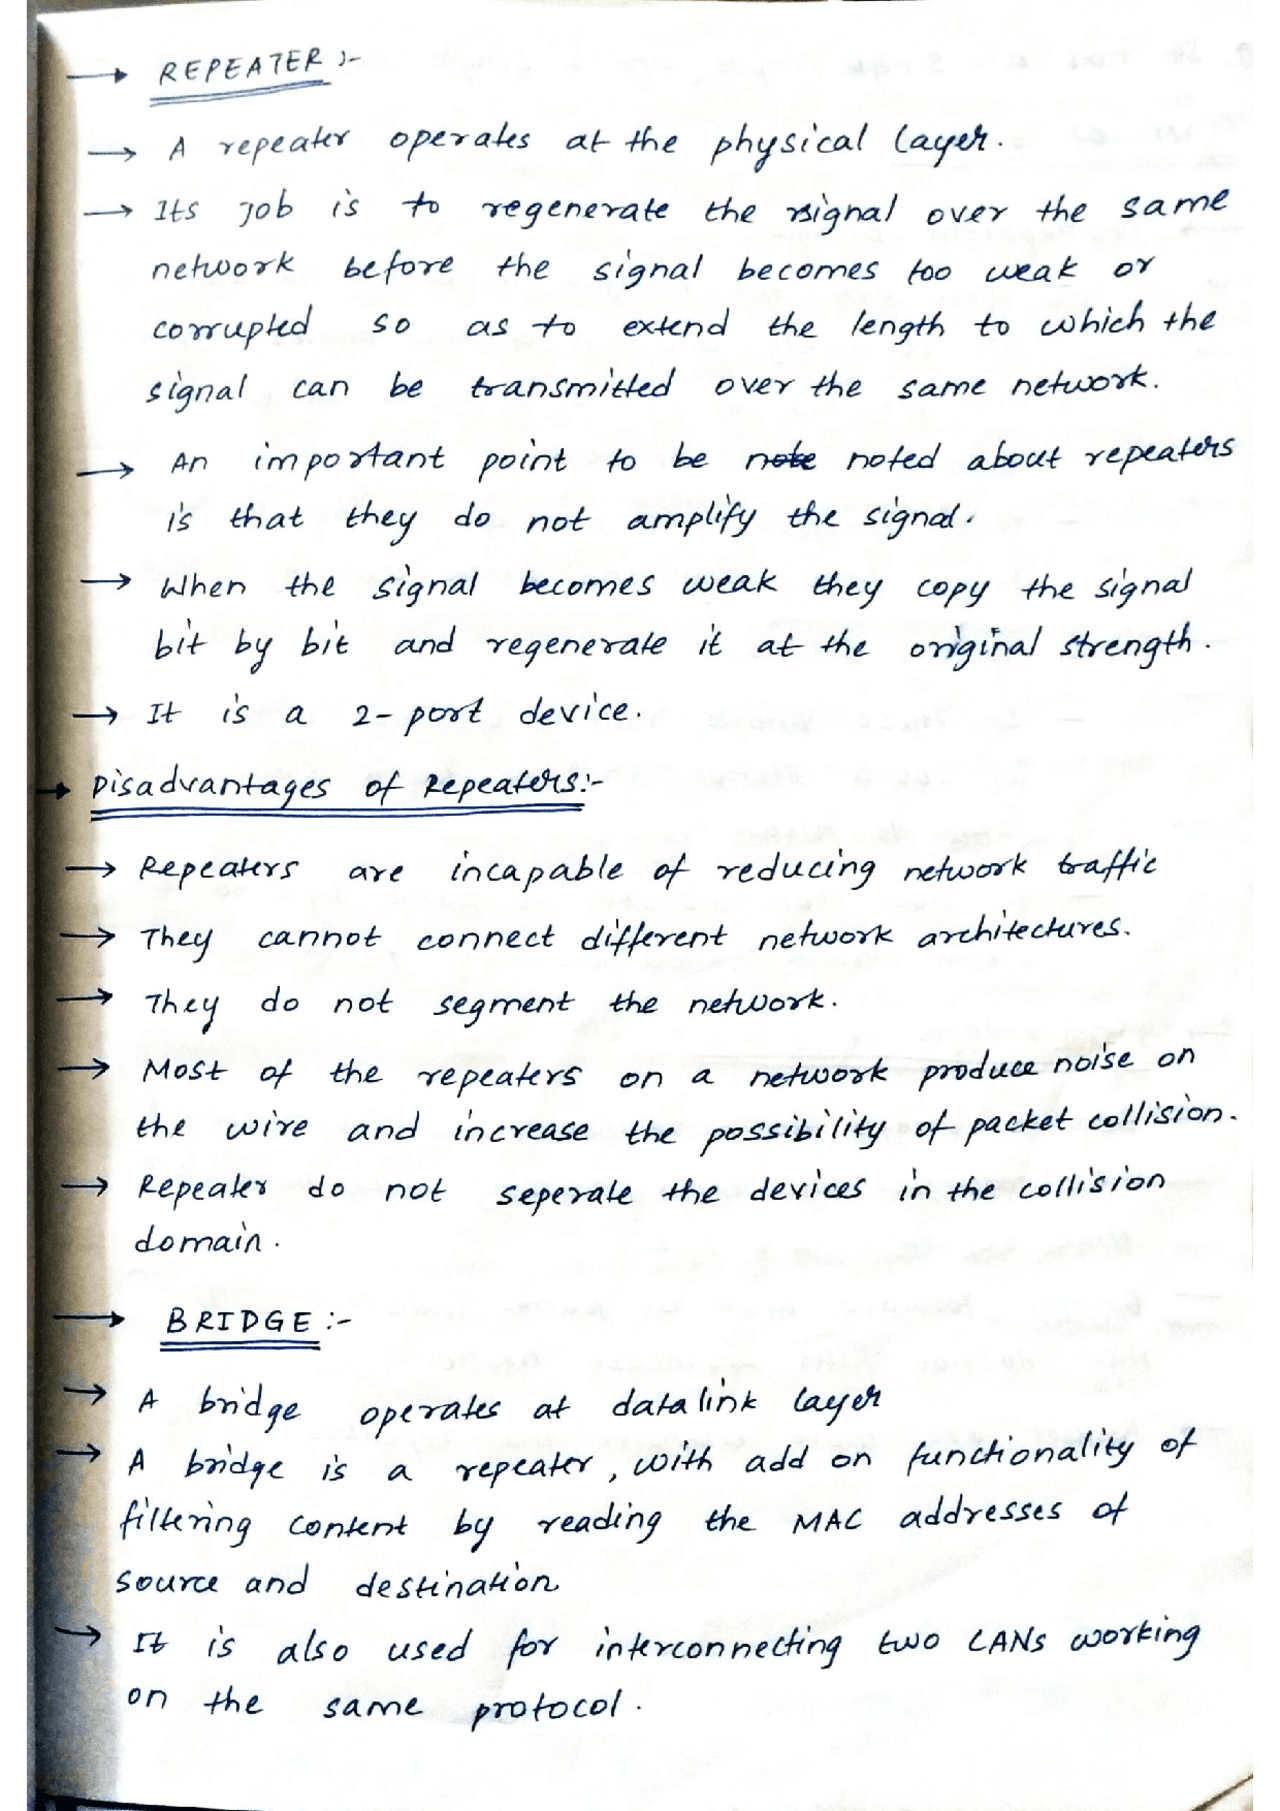 → REPEATER :-
→ A repeater operates at the physical layer.
→ Its job is to regenerate the signal over the same
network before the signal becomes too weak or
corrupted so as to extend the length to which the
signal can be transmitted over the same network.
→ An important point to be note noted about repeaters
is that they do not amplify the signal.
→ When the signal becomes weak they copy the signal
bit by bit and regenerate it at the original strength.
→ It is a 2-port device.
→ Disadvantages of Repeaters:-
→ Repeaters are incapable of reducing network traffic
→ They cannot connect different network architectures.
→ They do not segment the network.
→ Most of the repeaters on a network produce noise on
the wire and increase the possibility of packet collision.
→ Repeater do not seperate the devices in the collision
domain.
→ BRIDGE :-
→ A bridge operates at datalink layer
→ A bridge is a repeater, with add on functionality of
filtering content by reading the MAC addresses of
source and destination
→ It is also used for interconnecting two LANs working
on the same protocol.